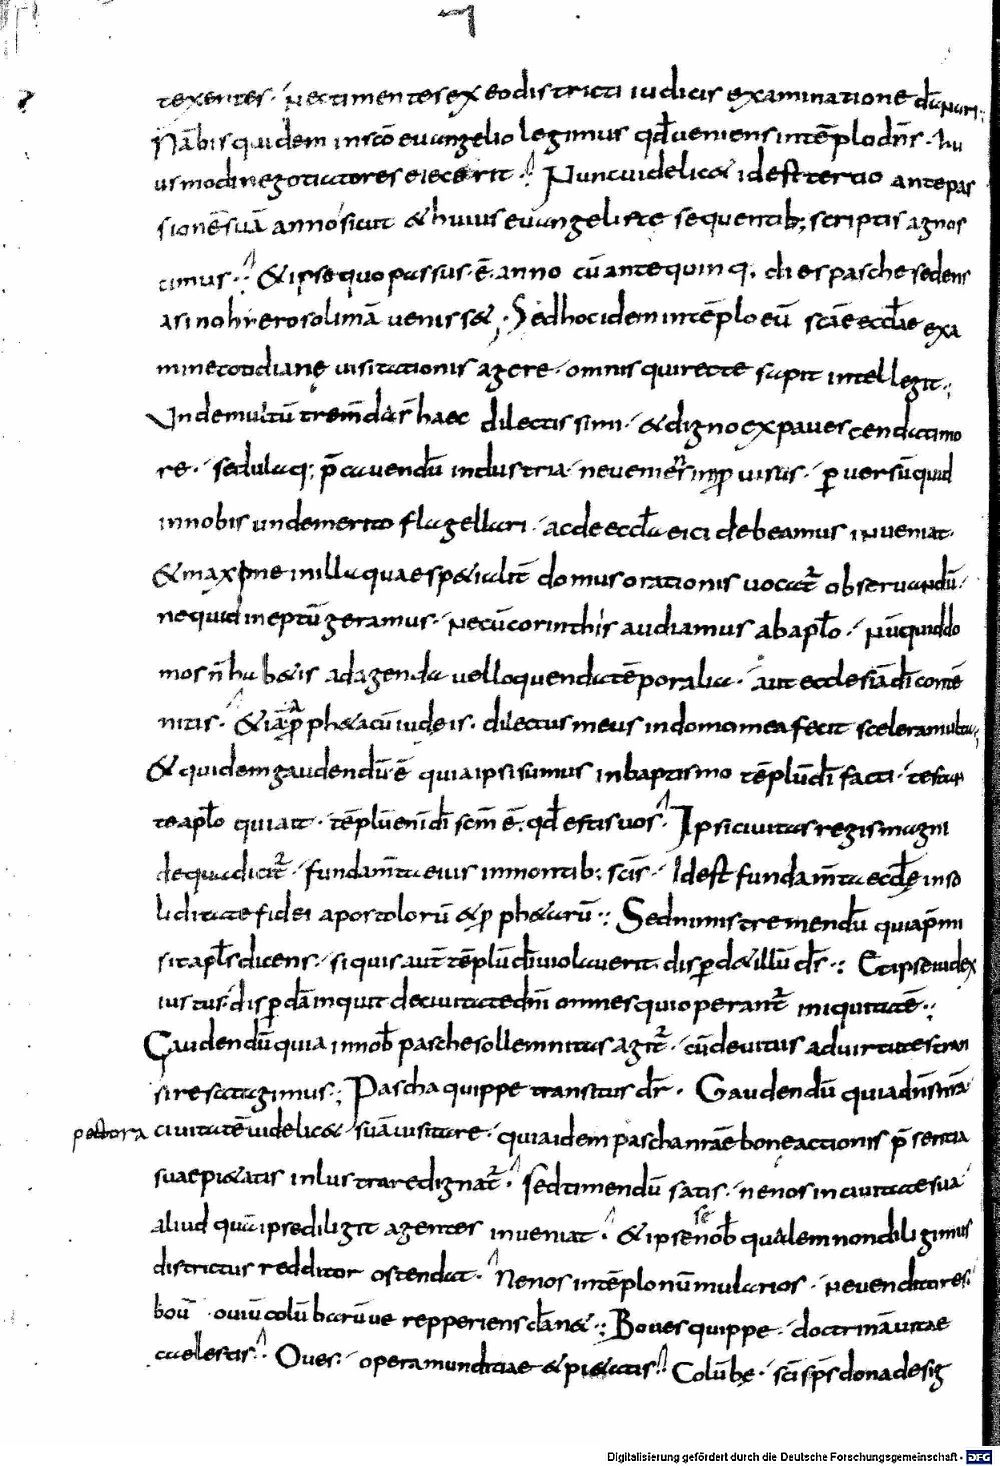 texentes. nec timentes ex eo districti iudicis examinatione dāpnari;
Nā bis quidem in sčo euangelio legimus qđ ueniens in tēplo dn̄s. hu
iusmodi negotiatores eiecerit. Nunc uidelic& id est tertio ante pas
sionē suā anno sicut & huius euangelistę sequentib; scriptis agnos
cimus. & ipse quo passus. ē. anno cū ante quinq; dies pasche sedens
asino hierosolimā uenisset. Sed hoc idem in tēplo eū scāe eccłae exa
mine cotidianę uisitationis agere. omnis qui recte sapit intellegit;
Unde multū tremd̄ār̄ haec dilectissimi. & digno expauescenda timo
re. sedulaq; p̄cauendū industria. ne ueniens inprouisus. peruersū quid
in nobis unde merito flagellari. ac de eccła eici debeamus inueniat.
& maxime in illa quae sp&ialit̄ domus orationis uocat̄ obseruandū.
ne quid ineptū geramus. ne cū corinthiis audiamus ab apłō. nūquid do
mos n̄ hab&is ad agenda uel loquenda tēporalia. aut ecclesiā dī contē
nitis. & iā ꝓph&a cū iudeis. dilectus meus in domo mea fecit scelera multa;
& quidem gaudendū ē quia ipsi sumus in baptismo tēplū dī facti. testan
te apłō qui ait. tēplū enī dī scm̄ ē. qđ estis uos. Ipsi ciuitas regis magni
de qua dicit̄. fundam̄ta eius in montib; scīs. Id est fundam̄ta eccłę in so
liditate fidei apostolorū & ꝓph&arū; Sed nimis tremendū quia p̄mi
sit apłs dicens. si quis aut̄ tēplū dī uiolauerit. disperd& illū ds̄; Et ipse iudex
iustus. disperdā inquit de ciuitate dn̄i omnes qui operant̄ iniquitatē;
Gaudendū quia in nob̄ pasche sollemnitas agit̄. cū de uitiis ad uirtutes tran
sire satagimus; Pascha quippe transitus dr̄. Gaudendū quia dn̄s n̄rā
pectora ciuitatē uidelic& suā uisitare. quia idem pascha n̄rāe bonę actionis p̄sentia
suae pi&atis inlustrare dignat̄. sed timendū satis. ne nos in ciuitate sua
aliud quā ipse diligit agentes inueniat. & ipse se nob̄ qualem non diligimus
districtus redditor ostendat. Ne nos in tēplo nūmularios. ne uenditores.
boū. ouiū colūbarūue repperiens dān&; Boues quippe. doctrinā uitae
caelestis. Oues. opera munditiae & pi&atis. Colūbę. scī sp̄s dona desig
Digitalisierung gefördert durch die Deutsche Forschungsgemeinschaft - DFG